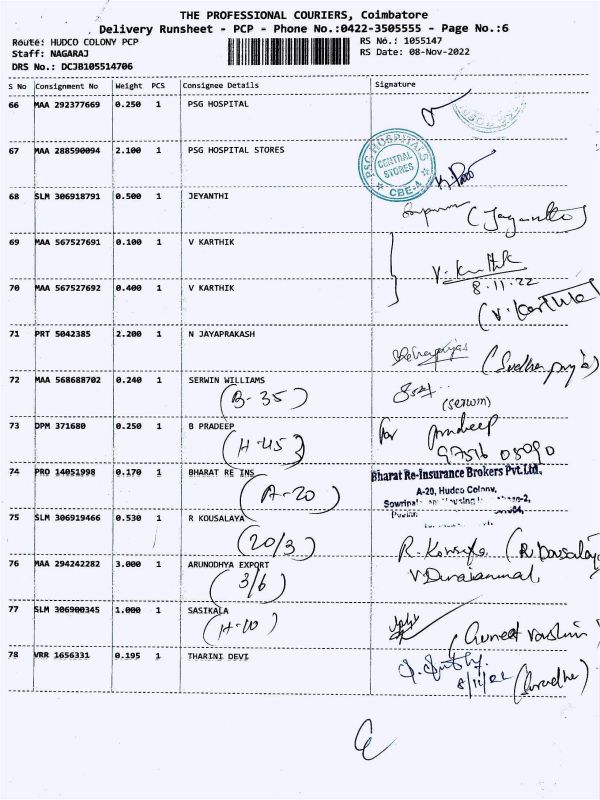 THE PROFESSIONAL COURIERS, Coimbatore
Delivery Runsheet - PCP - Phone No.:0422-3505555 - Page No.:6
Route: HUDCO COLONY PCP
RS No.: 1055147
Staff: NAGARAJ
RS Date: 08-Nov-2022
DRS No.: DCJB105514706
S No Consignment No Weight PCS Consignee Details Signature
66 MAA 292377669 0.250 1 PSG HOSPITAL
67 MAA 288590094 2.100 1 PSG HOSPITAL STORES
PSG HOSPITALS
CENTRAL
STORES
CBE-4
68 SLM 306918791 0.500 1 JEYANTHI
69 MAA 567527691 0.100 1 V KARTHIK
V. Karthik
8.11.22
70 MAA 567527692 0.400 1 V KARTHIK
(V. Karthik)
71 PRT 5042385 2.200 1 N JAYAPRAKASH
72 MAA 568688702 0.240 1 SERWIN WILLIAMS
(B-35)
(serwin)
73 DPM 371680 0.250 1 B PRADEEP
for pradeep
(H-45)
97516 05090
74 PRO 14051998 0.170 1 BHARAT RE INS
Bharat Re-Insurance Brokers Pvt.Ltd.,
(A-20)
A-20, Hudco Colony,
75 SLM 306919466 0.530 1 R KOUSALAYA
(20/3)
76 MAA 294242282 3.000 1 ARUNODHYA EXPORT
(3/6)
77 SLM 306900345 1.000 1 SASIKALA
(H-10)
78 VRR 1656331 0.195 1 THARINI DEVI
8/11/22